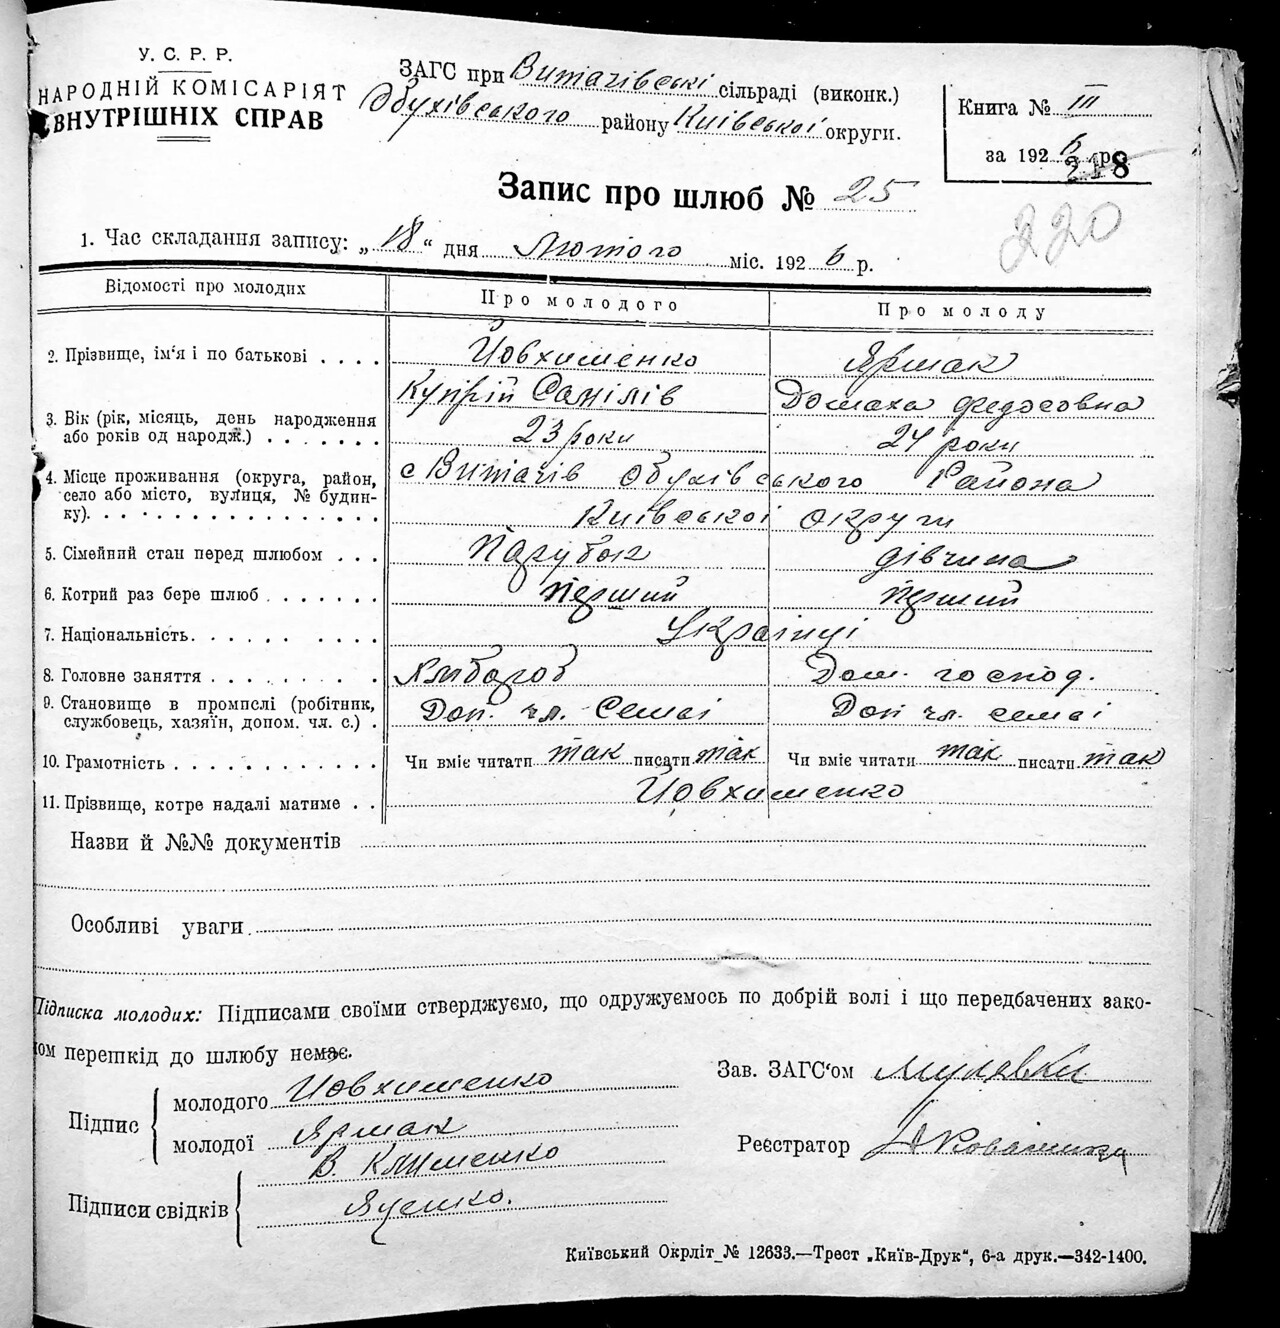 У. С. Р. Р.
НАРОДНІЙ КОМІСАРІЯТ
ВНУТРІШНІХ СПРАВ
ЗАГС при Витачівські сільраді (виконк.)
Обухівського району Київської округи.
Книга № III
за 1926 р.
218
220
Запис про шлюб № 25
1. Час складання запису: „18“ дня Лютого міс. 1926 р.
Відомості про молодих
Про молодого
Про молоду
2. Прізвище, ім‘я і по батькові . . . .
Йовхименко
Ярмак
Купрій Санілів
Домаха Федосовна
3. Вік (рік, місяць, день народження
або років од народж.) . . . . . . .
23 роки
21 роки
4. Місце проживання (округа, район,
село або місто, вулиця, № будин-
ку). . . . . . . . . . . . . . . .
с Витачів Обухівського Района
Київської округи
5. Сімейний стан перед шлюбом . . .
Парубок
дівчина
6. Котрий раз бере шлюб . . . . . . .
Перший
Перший
7. Національність. . . . . . . . . . .
Українці
8. Головне заняття . . . . . . . . . .
Хлібороб
Дом. господ.
9. Становище в промислі (робітник,
службовець, хазяїн, допом. чл. с.) .
Доп. чл. Семї
Доп чл. семї
10. Грамотність . . . . . . . . . . . .
Чи вміє читати так писати так
Чи вміє читати так писати так
11. Прізвище, котре надалі матиме . .
Йовхименко
Назви й №№ документів
Особливі уваги
Підписка молодих: Підписами своїми стверджуємо, що одружуємось по добрій волі і що передбачених зако-
ом перешкід до шлюбу немає.
Підпис
молодого Йовхименко
молодої Ярмак
Підписи свідків
В. Клименко
Яценко.
Зав. ЗАГС‘ом
Реєстратор
Київський Окрліт № 12633.—Трест „Київ-Друк“, 6-а друк.—342-1400.